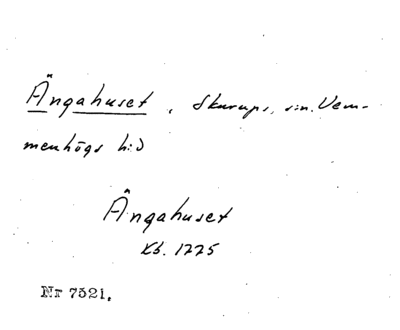 Ängahuset, Skurups, sn. Vem-
menhögs h:d
Ängahuset
Kb. 1775
Nr 7521.